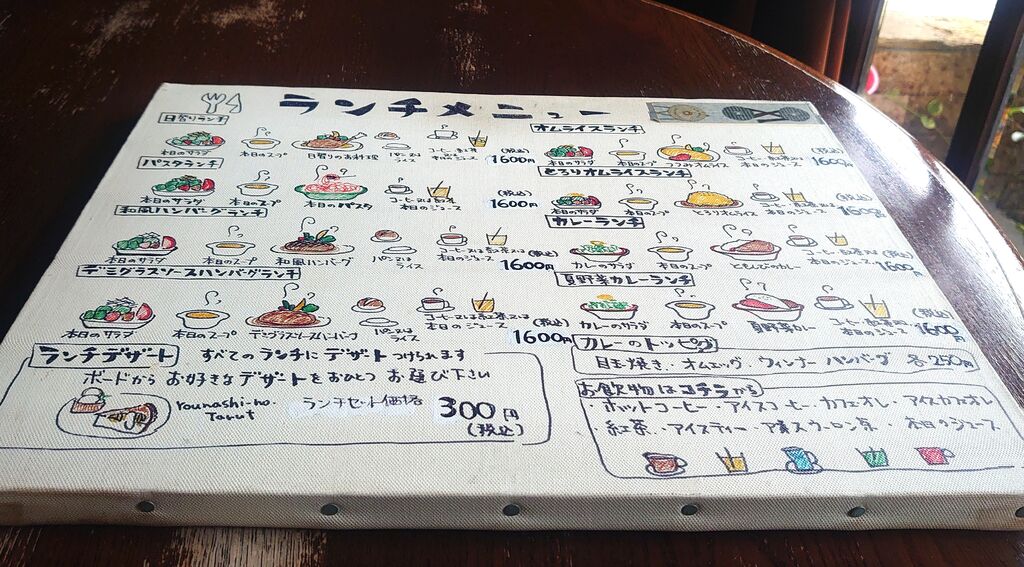 ランチメニュー
日替りランチ
本日のサラダ
本日のスープ
日替りのお料理
パン又は
ライス
コーヒー又は紅茶又は
本日のジュース
(税込)
1600円
パスタランチ
本日のサラダ
本日のスープ
本日のパスタ
コーヒー又は紅茶又は
本日のジュース
(税込)
1600円
和風ハンバーグランチ
本日のサラダ
本日のスープ
和風ハンバーグ
パン又は
ライス
コーヒー又は紅茶又は
本日のジュース
(税込)
1600円
デミグラスソースハンバーグランチ
本日のサラダ
本日のスープ
デミグラスソースハンバーグ
パン又は
ライス
コーヒー又は紅茶又は
本日のジュース
(税込)
1600円
オムライスランチ
本日のサラダ
本日のスープ
つつみオムライス
コーヒー又は紅茶又は
本日のジュース
(税込)
1600円
とろりオムライスランチ
本日のサラダ
本日のスープ
とろりオムライス
コーヒー又は紅茶又は
本日のジュース
(税込)
1600円
カレーランチ
カレーのサラダ
本日のスープ
ともしびのカレー
コーヒー又は紅茶又は
本日のジュース
(税込)
1600円
夏野菜カレーランチ
カレーのサラダ
本日のスープ
夏野菜カレー
コーヒー又は紅茶又は
本日のジュース
(税込)
1600円
カレーのトッピング
目玉焼き．オムエッグ．ウィンナー ハンバーグ 各250円
お飲物はコチラから
・ホットコーヒー・アイスコーヒー・カフェオレ・アイスカフェオレ
・紅茶・アイスティー・凍頂ウーロン茶・本日のジュース
ランチデザート すべてのランチにデザートつけられます
ボードから お好きなデザートをおひとつ お選び下さい
Younashi-no
Tarut
ランチセット価格 300円
(税込)